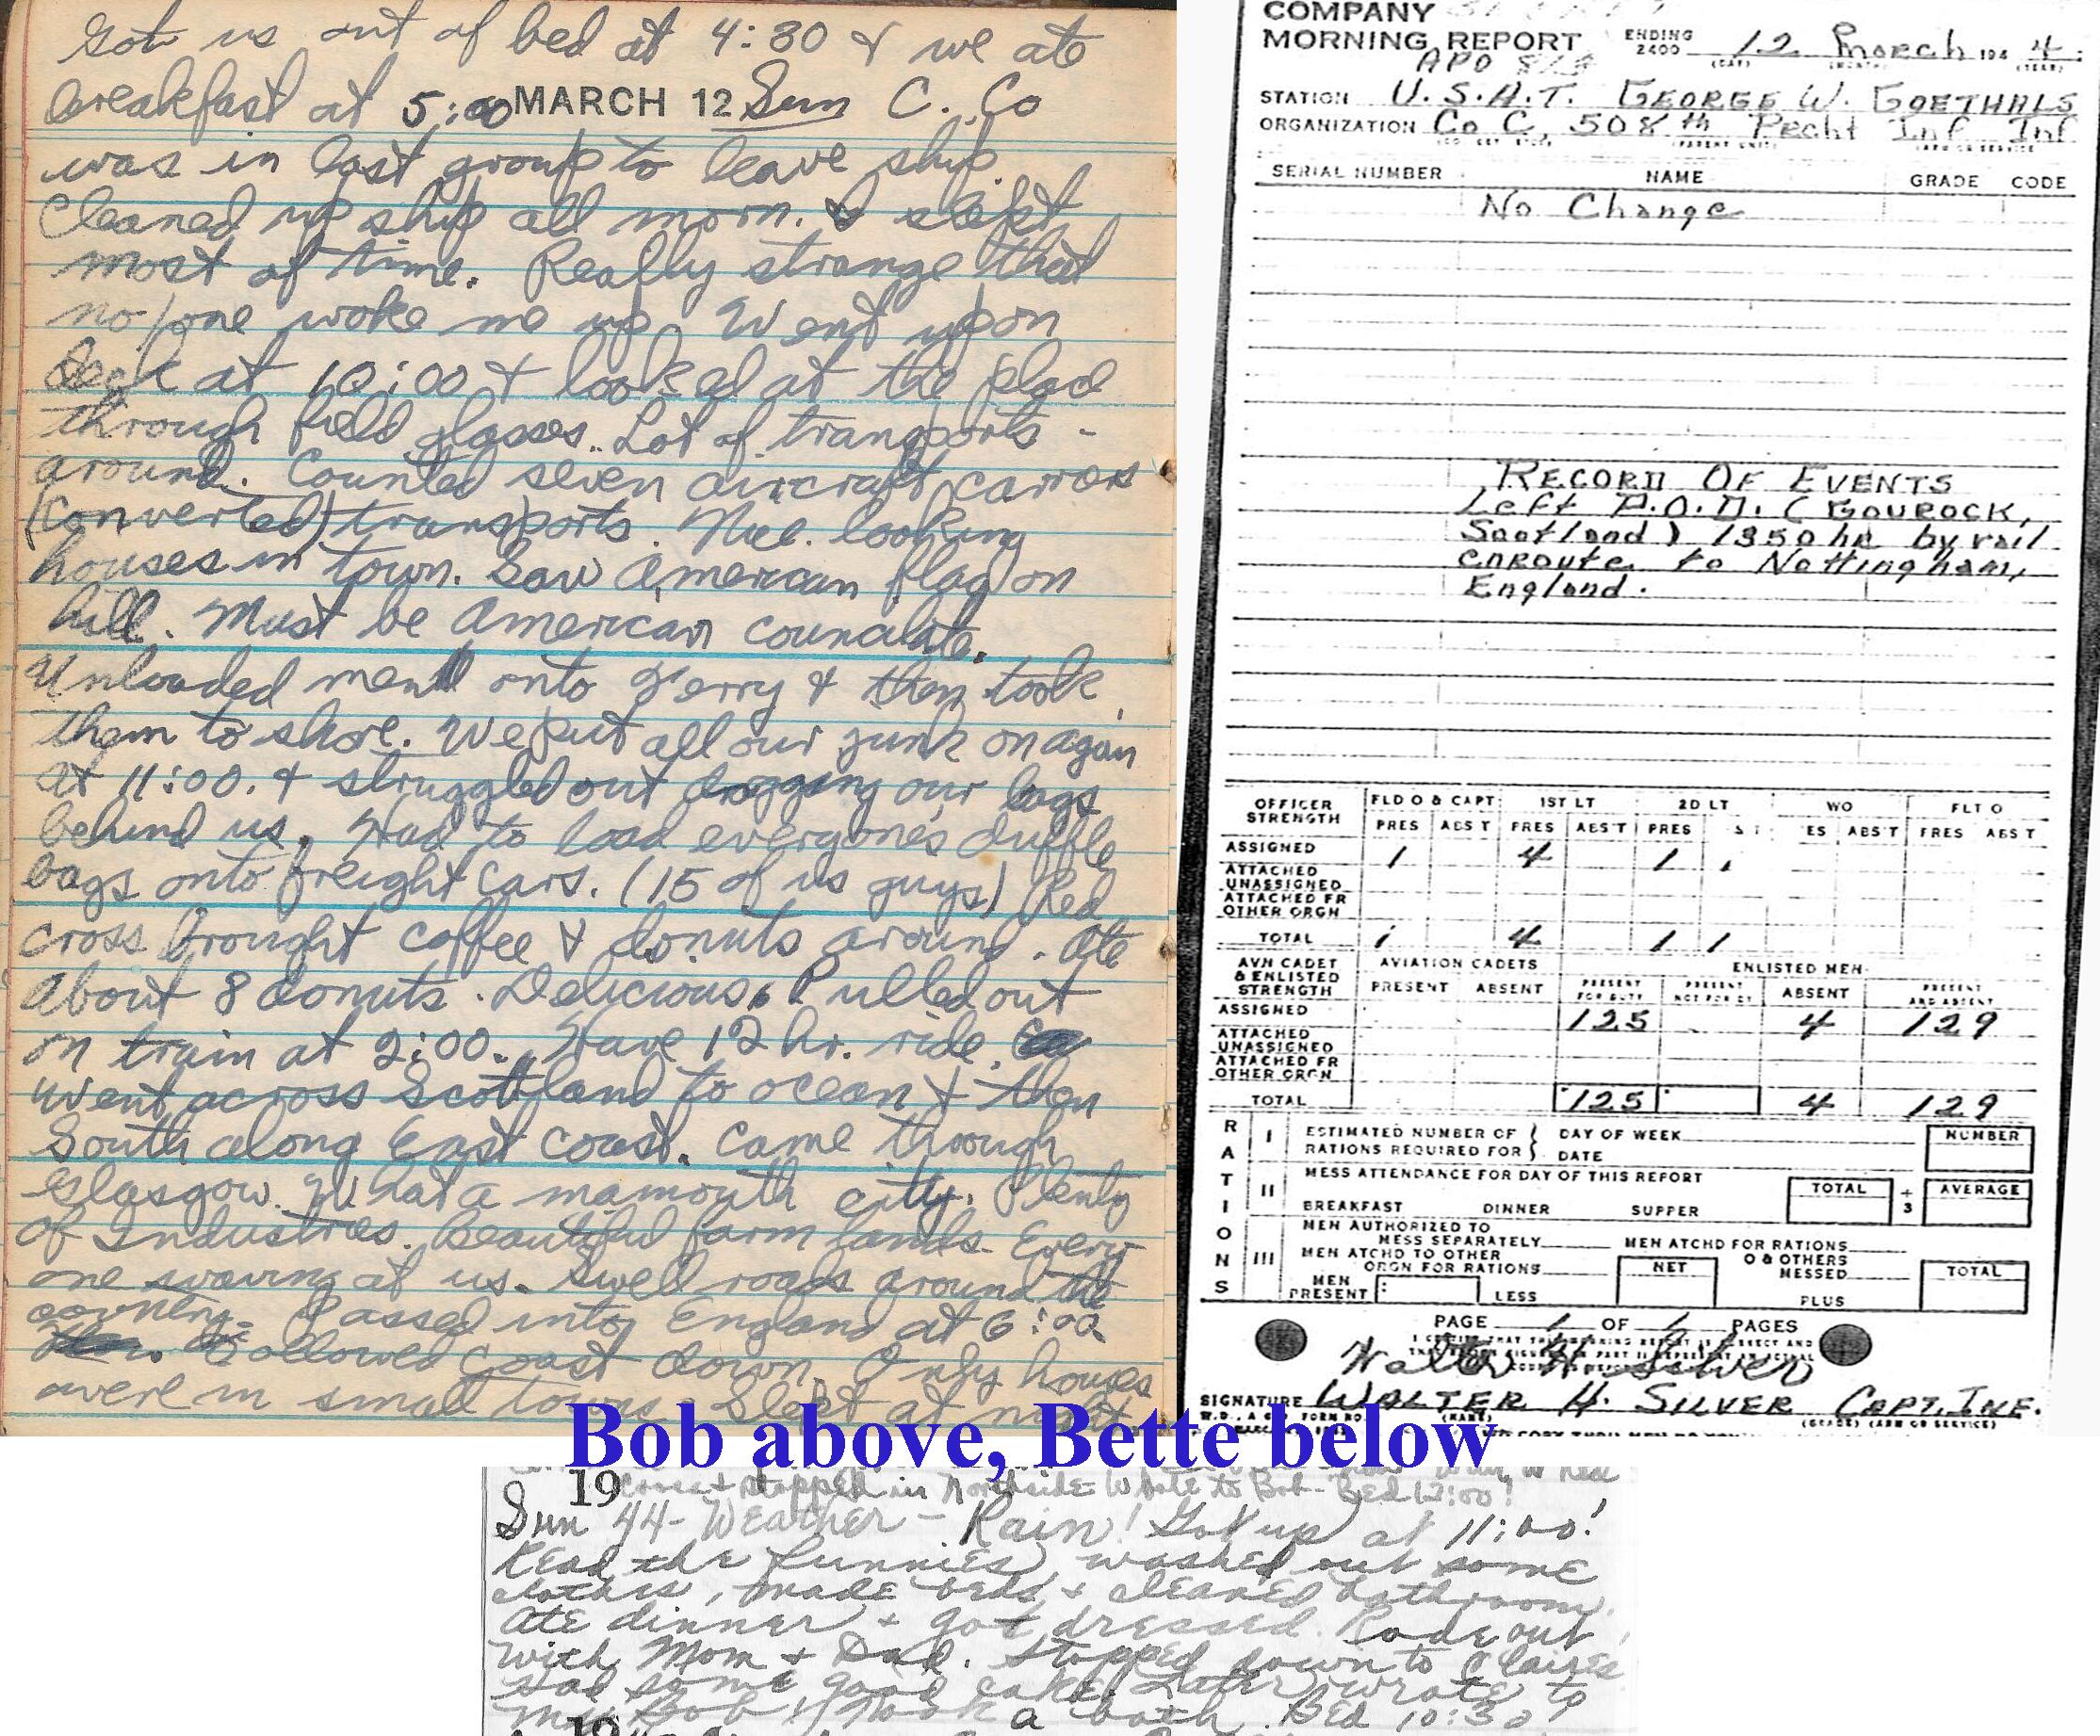 Got us out of bed at 4:30 & we ate
breakfast at 5:00 MARCH 12 Sun C. Co
was in last group to leave ship.
Cleaned up ship all morn. I slept
most of time. Really strange that
no/one woke me up. Went upon
deck at 10:00 & looked at the place
through field glasses. Lot of transports -
around. Counted seven aircraft carrors
(converted) transports. Nice looking
houses in town. Saw American flag on
hill. Must be American
Unloaded men onto Ferry & then took
them to shore. We put all our junk on again
at 11:00. & struggled out dragging our bags
behind us. Had to load everyone's duffle
bags onto freight cars. (15 of us guys) Red
Cross brought coffee & donuts around. Ate
about 8 donuts. Delicious. Pulled out
on train at 2:00. Have 12 hr. ride.
Went across Scottland to ocean & then
South along East Coast. Came through
Glasgow. What a mamouth city. Plenty
of Industries. Beautiful farm lands. Every
one waving at us. Swell roads around the
country. Passed into England at 6:00.
Followed coast down. Only houses
were in small towns. Slept at night
COMPANY
MORNING REPORT ENDING 2400 12 March 194 4
(DAY) (MONTH) (YEAR)
APO
STATION U.S.A.T. GEORGE W. GOETHALS
ORGANIZATION Co C, 508th Pecht Inf Inf
SERIAL NUMBER NAME GRADE CODE
No Change
RECORD OF EVENTS
Left P.O.D. (GOUROCK,
Scotland) 1350 hr by rail
enroute to Nottingham,
England.
OFFICER STRENGTH FLD O & CAPT 1ST LT 2D LT WO FLT O
PRES ABS T PRES ABS T PRES ABS T PRES ABS T
ASSIGNED 1 4 1 1
ATTACHED
UNASSIGNED
ATTACHED FR
OTHER ORGN
TOTAL 1 4 1 1
AVN CADET & ENLISTED STRENGTH AVIATION CADETS ENLISTED MEN
PRESENT ABSENT PRESENT FOR DUTY PRESENT NOT FOR DY ABSENT PRESENT AND ABSENT
ASSIGNED 125 4 129
ATTACHED
UNASSIGNED
ATTACHED FR
OTHER ORGN
TOTAL 125 4 129
RATIONS
I ESTIMATED NUMBER OF RATIONS REQUIRED FOR DAY OF WEEK DATE NUMBER
II MESS ATTENDANCE FOR DAY OF THIS REPORT TOTAL ÷ 3 AVERAGE
BREAKFAST DINNER SUPPER
III MEN AUTHORIZED TO MESS SEPARATELY MEN ATCHD FOR RATIONS
MEN ATCHD TO OTHER ORGN FOR RATIONS NET O & OTHERS MESSED TOTAL
MEN PRESENT LESS PLUS
PAGE 1 OF 1 PAGES
Walter H Silver
SIGNATURE WALTER H. SILVER CAPT, INF.
Bob above, Bette below
19 Cross & stopped in Northside Wrote to Bob - Bed 12:00!
Sun 44 - Weather - Rain! Got up at 11:00!
Read the funnies, washed out some
clothes, made beds & cleaned bathroom.
Ate dinner & got dressed. Rode out
with Mom & Dad. Stopped down to Claire's
Had some good cake. Later wrote to
my Bob!! Took a bath. Bed 10:30
19